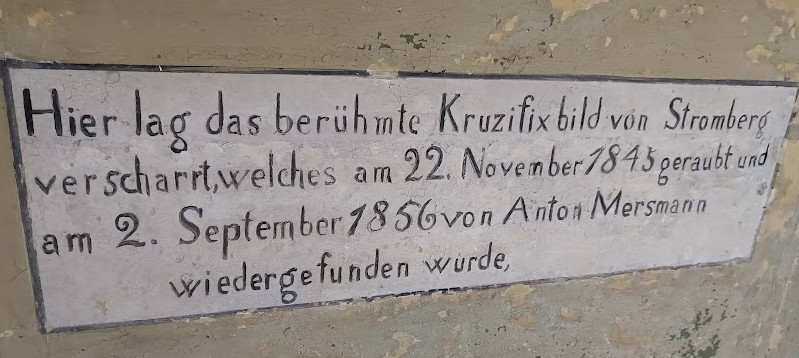 Hier lag das berühmte Kruzifixbild von Stromberg
verscharrt, welches am 22. November 1845 geraubt und
am 2. September 1856 von Anton Mersmann
wiedergefunden wurde,